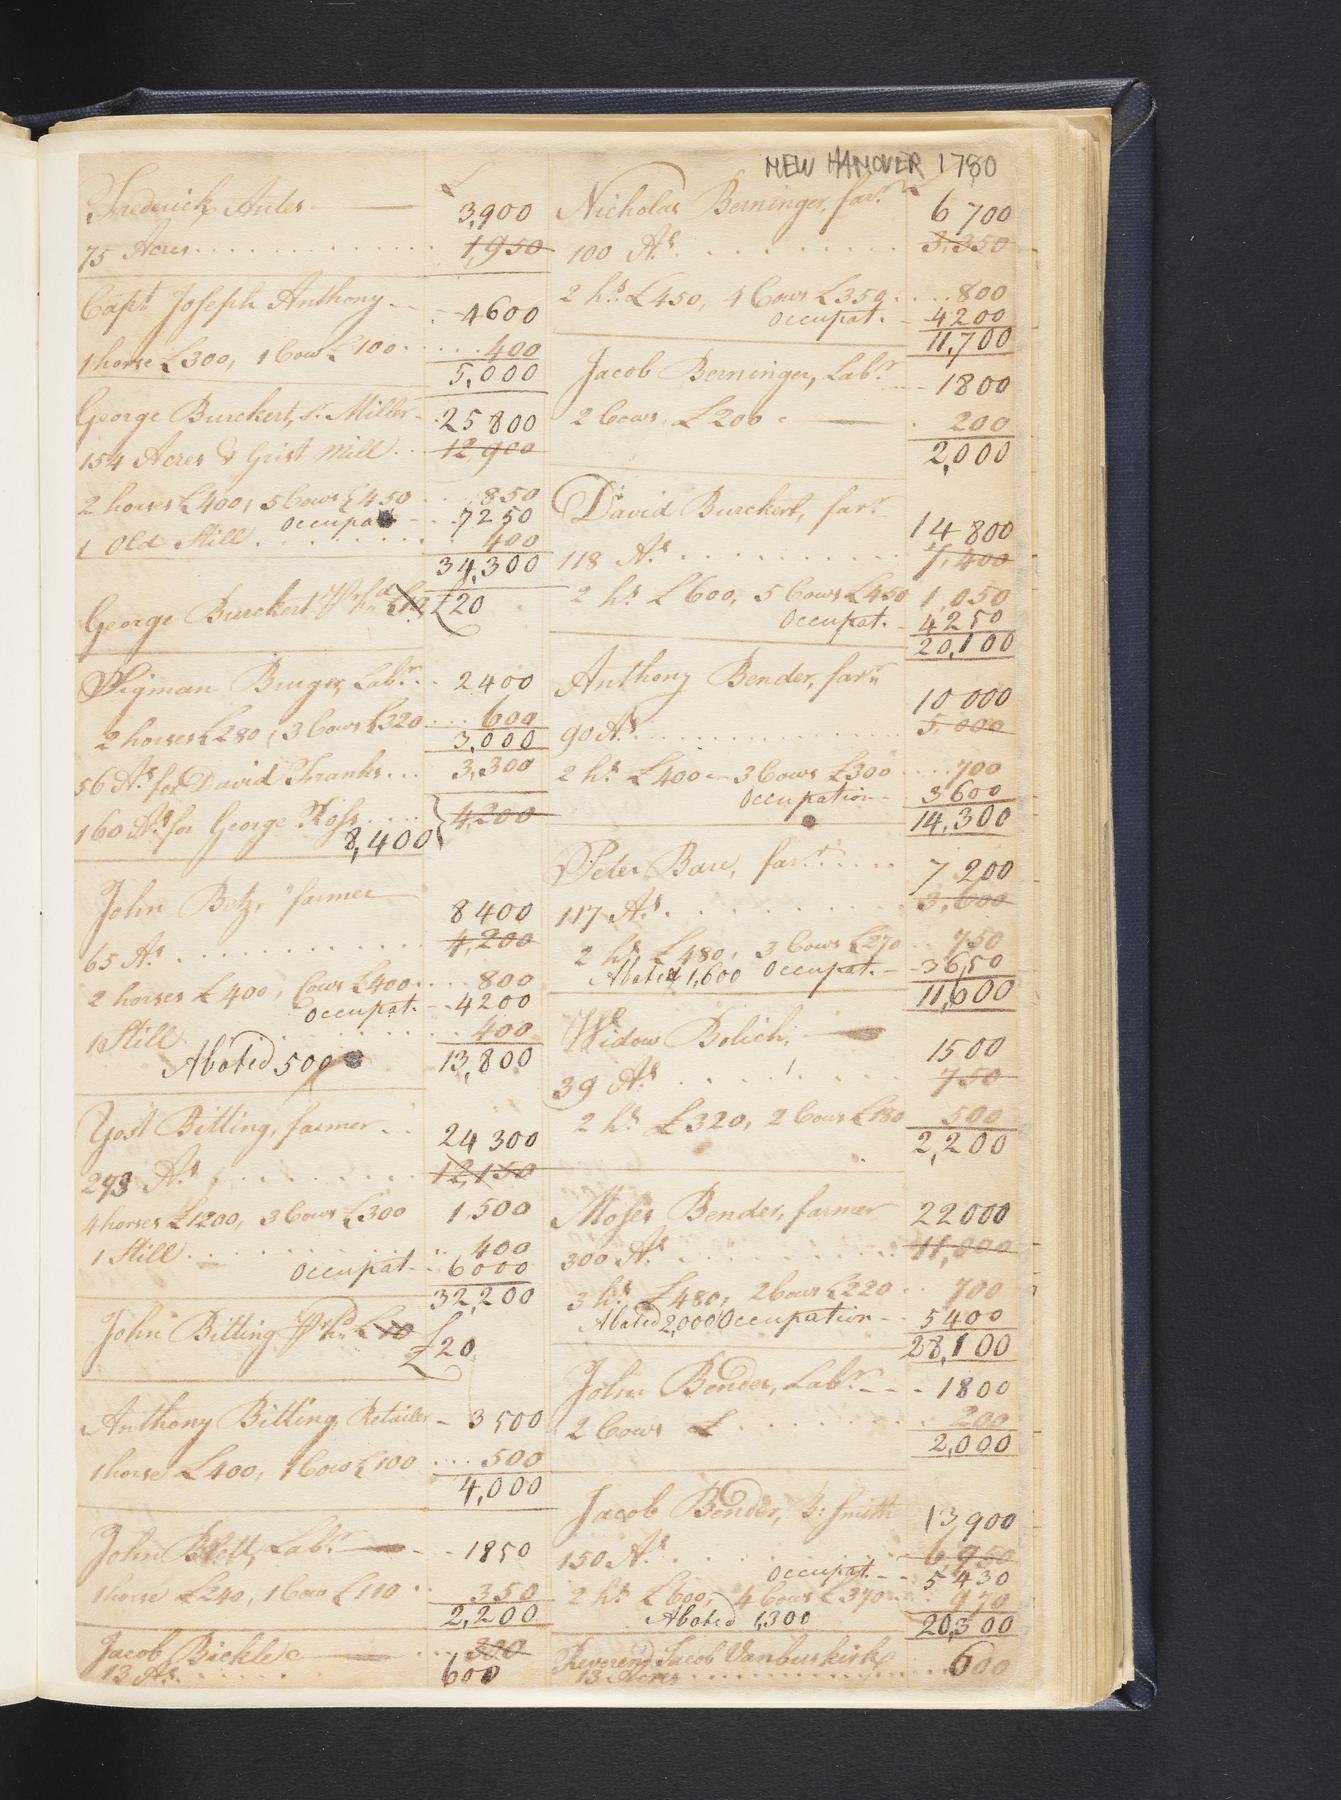 NEW HANOVER 1780
£
Frederick Antes 3,900
75 Acres 1,950
Capt Joseph Anthony 4600
1 horse £300, 1 Cow £100 400
5,000
George Burckert, Sr. Miller 25800
154 Acres & Grist Mill 12,900
2 horses £400, 5 Cows £450 850
Occupat 7250
1 Old Still 400
34,300
George Burckert £20
Sigman Burger, Labr. 2400
2 horses £280, 3 Cows £320 600
3,000
56 As. for David Franks 3,300
160 As. for George Ross 4,200
8,400
John Betz, farmer 8400
65 As. 4,200
2 horses £400, Cows £400 800
Occupat. 4200
1 Still 400
Abated 500 13,800
Yost Bitting, farmer 24300
293 As. 12,150
4 horses £1200, 3 Cows £300 1,500
1 Still 400
Occupat 6000
32,200
John Bitting £10
£20
Anthony Bitting, Retailer 3500
1 horse £400, 1 Cow £100 500
4,000
John Labr. 1850
1 horse £240, 1 Cow £110 350
2,200
Jacob Bickle 300
13 As. 600
Nicholas Berninger, farr. 6700
100 As. 3,350
2 hs. £450, 4 Cows £350 800
Occupat. 4200
11,700
Jacob Berninger, Labr. 1800
2 Cows £200 200
2,000
David Burckert, farr. 14800
118 As. 7,400
2 hs. £600, 5 Cows £450 1,050
Occupat. 4250
20,100
Anthony Bender, farr. 10000
90 As. 5,000
2 hs. £400 3 Cows £300 700
Occupation 3600
14,300
Peter Bare, farr. 7200
117 As. 3,600
2 hs. £480, 3 Cows £270 750
Abated 1,600 Occupat. 3650
11,600
Widow Bolich, 1500
39 As. 750
2 hs. £320, 2 Cows £180 500
2,200
Moses Bender, farmer 22000
300 As. 11,000
3 hs. £480, 2 Cows £220 700
Abated 2,000 Occupation 5400
28,100
John Bender, Labr. 1800
2 Cows £ 200
2,000
Jacob Bender, B: Smith 13900
150 As. 6,950
Occupat. 5430
2 hs. £600, 4 Cows £370 970
Abated 1,300 20,300
Reverend Jacob Vanbuskirk 600
13 Acres